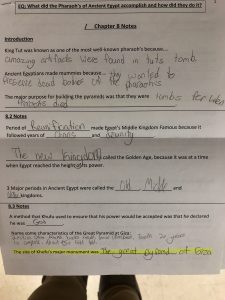 EQ: What did the Pharaoh's of Ancient Egypt accomplish and how did they do it?
Chapter 8 Notes
Introduction
King Tut was known as one of the most well-known pharaoh's because...
amazing artifacts were found in tuts tomb.
Ancient Egyptians made mummies because they wanted to
preserve dead bodies of pharaohs
The major purpose for building the pyramids was that they were tombs for when
Pharaohs died
8.2 Notes
Period of Reunification made Egypt's Middle Kingdom Famous because it
followed years of chaos and
The new kingdom called the Golden Age, because it was at a
time when Egypt reached the height of its power.
3 Major periods in Ancient Egypt were called the Old, Middle and
kingdoms.
8.3 Notes
A method that Khufu used to ensure that his power would be accepted was that he declared
he was God
Name some characteristics of the Great Pyramid at Giza:
took 20 years
to
The site of Khufu's major monument was The great pyramid at Giza